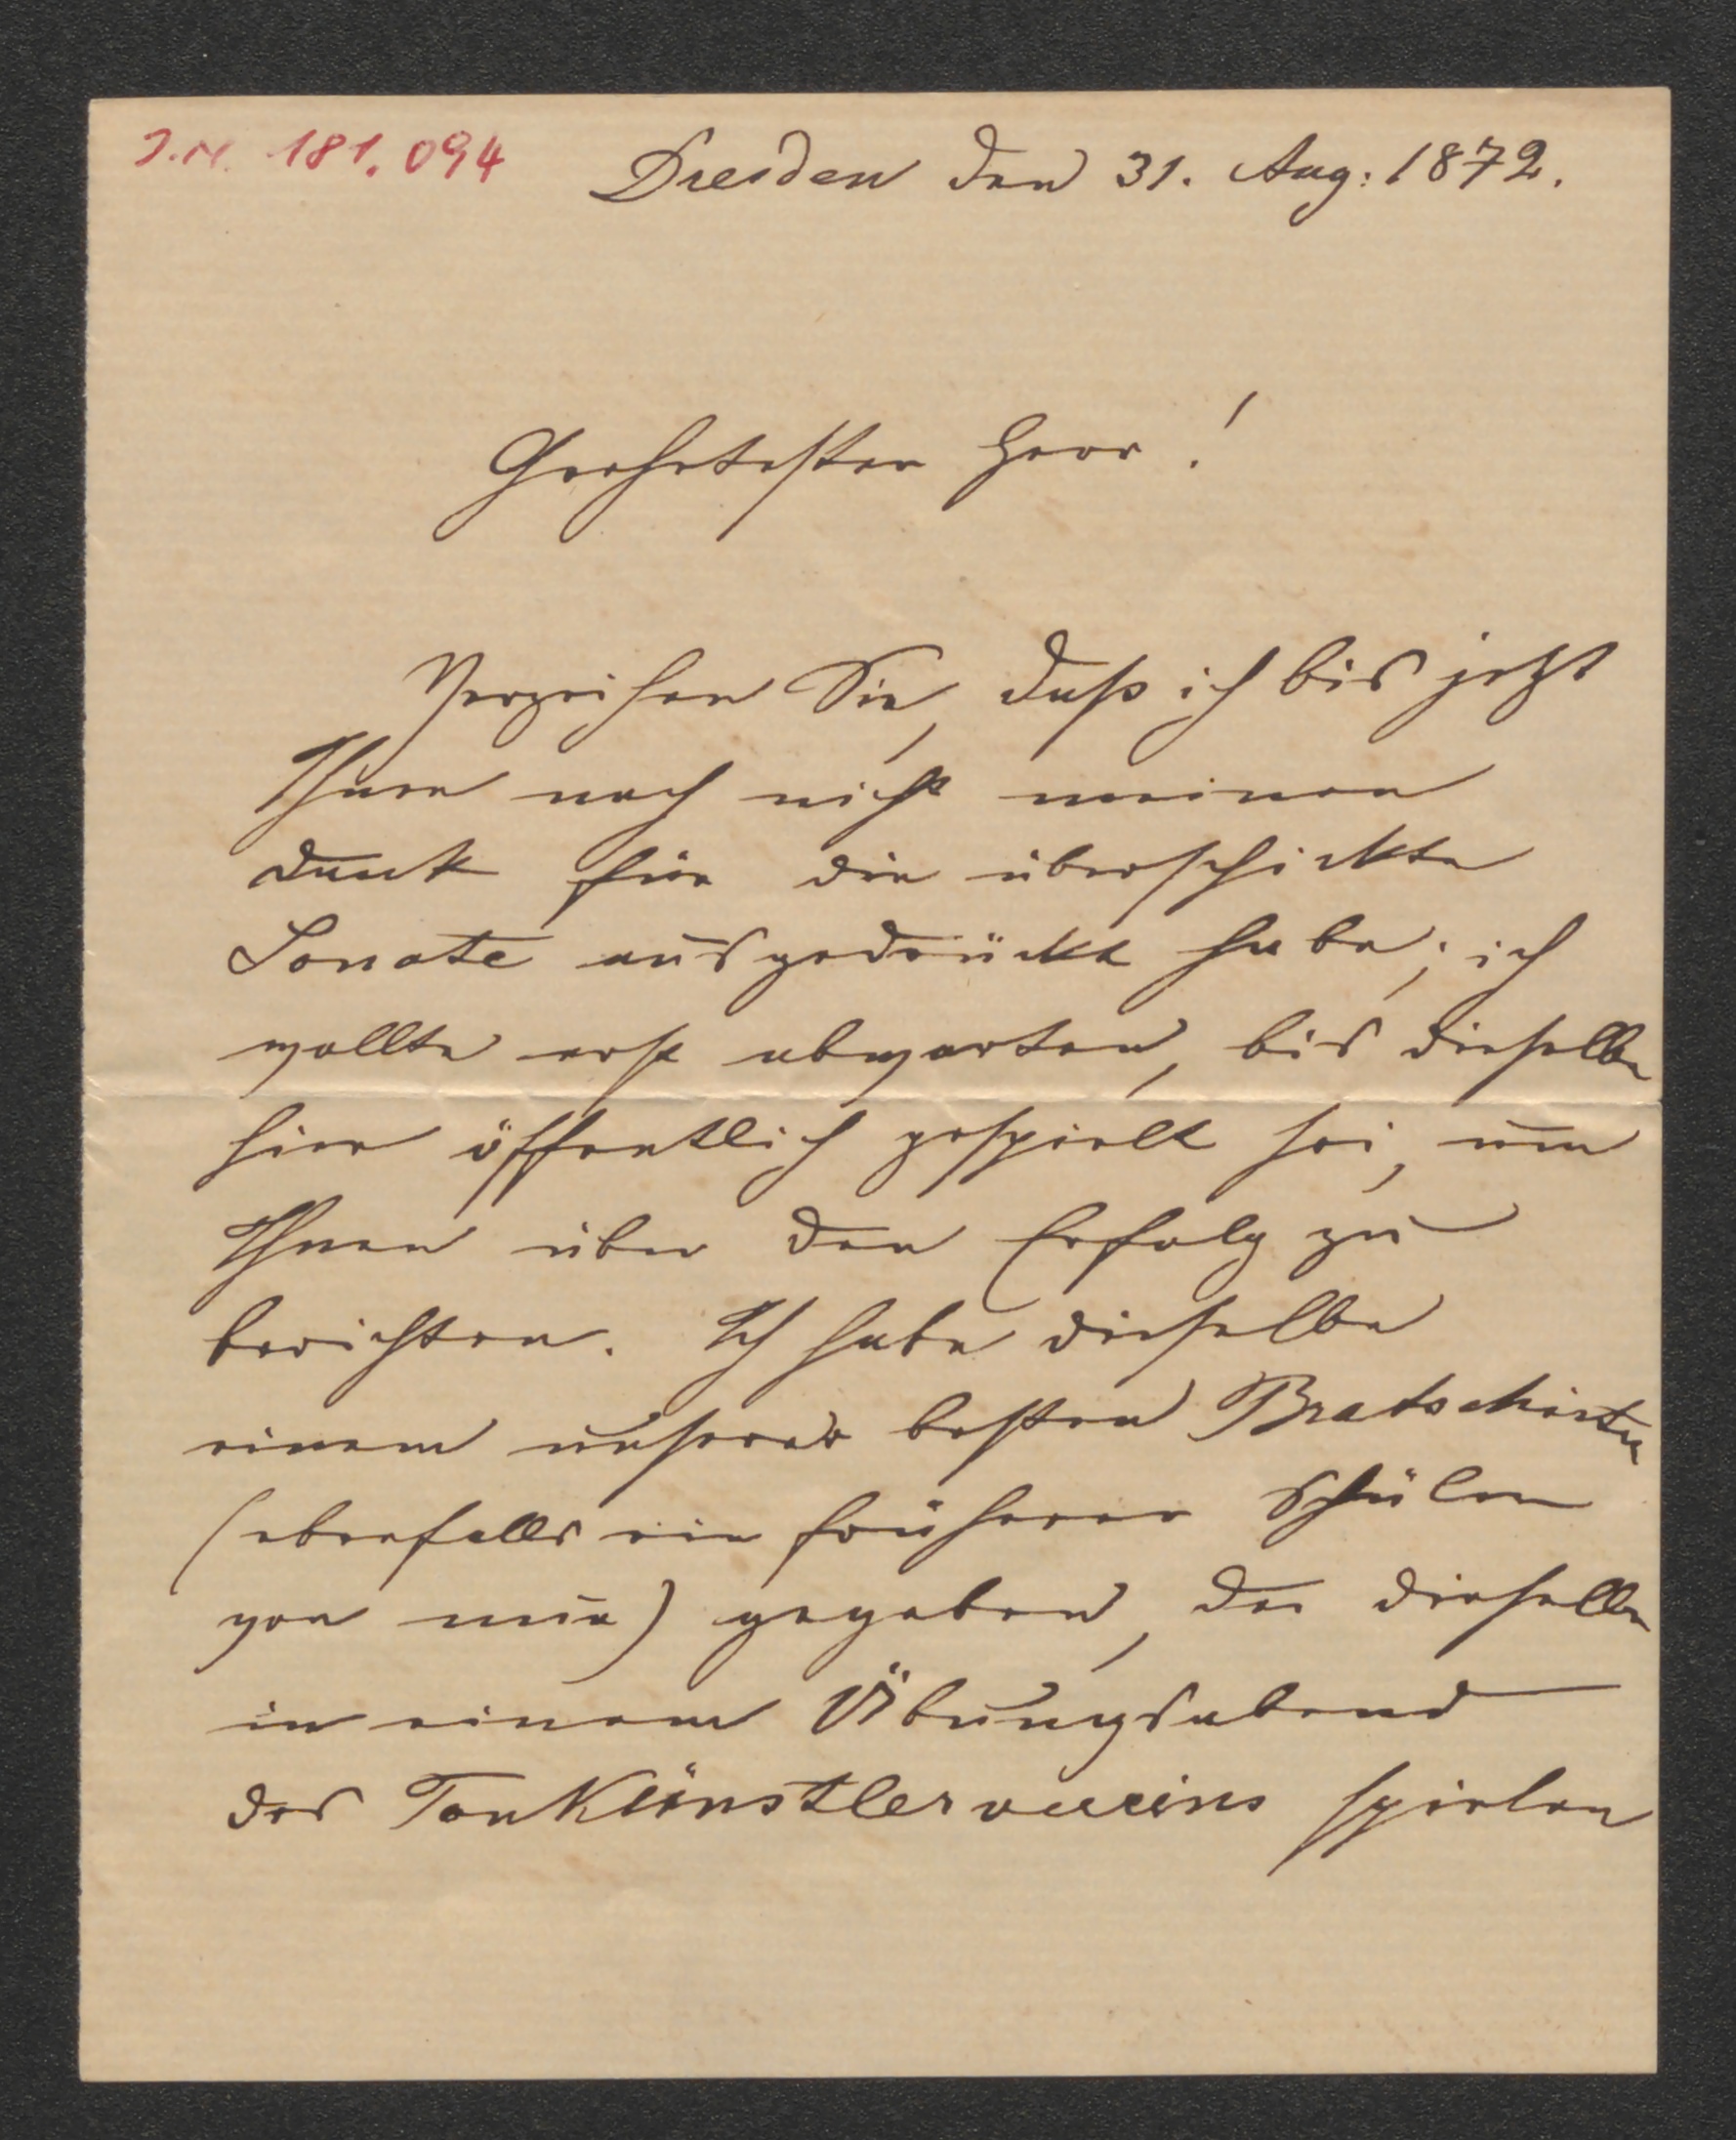 I.N. 181.094
Dresden den 31. Aug: 1872.
Geehrtester Herr!
Verzeihen Sie, daß ich bis jetzt
Ihnen noch nicht meinen
Dank für die überschickte
Sonate ausgedrückt habe; ich
wollte erst abwarten, bis dieselbe
hier öffentlich gespielt sei, um
Ihnen über den Erfolg zu
berichten. Ich habe dieselbe
einem unserer besten Bratschisten
(ebenfalls ein früherer Schüler
von mir) gegeben, der dieselbe
in einem Übungsabend
des Tonkünstlervereins spielen